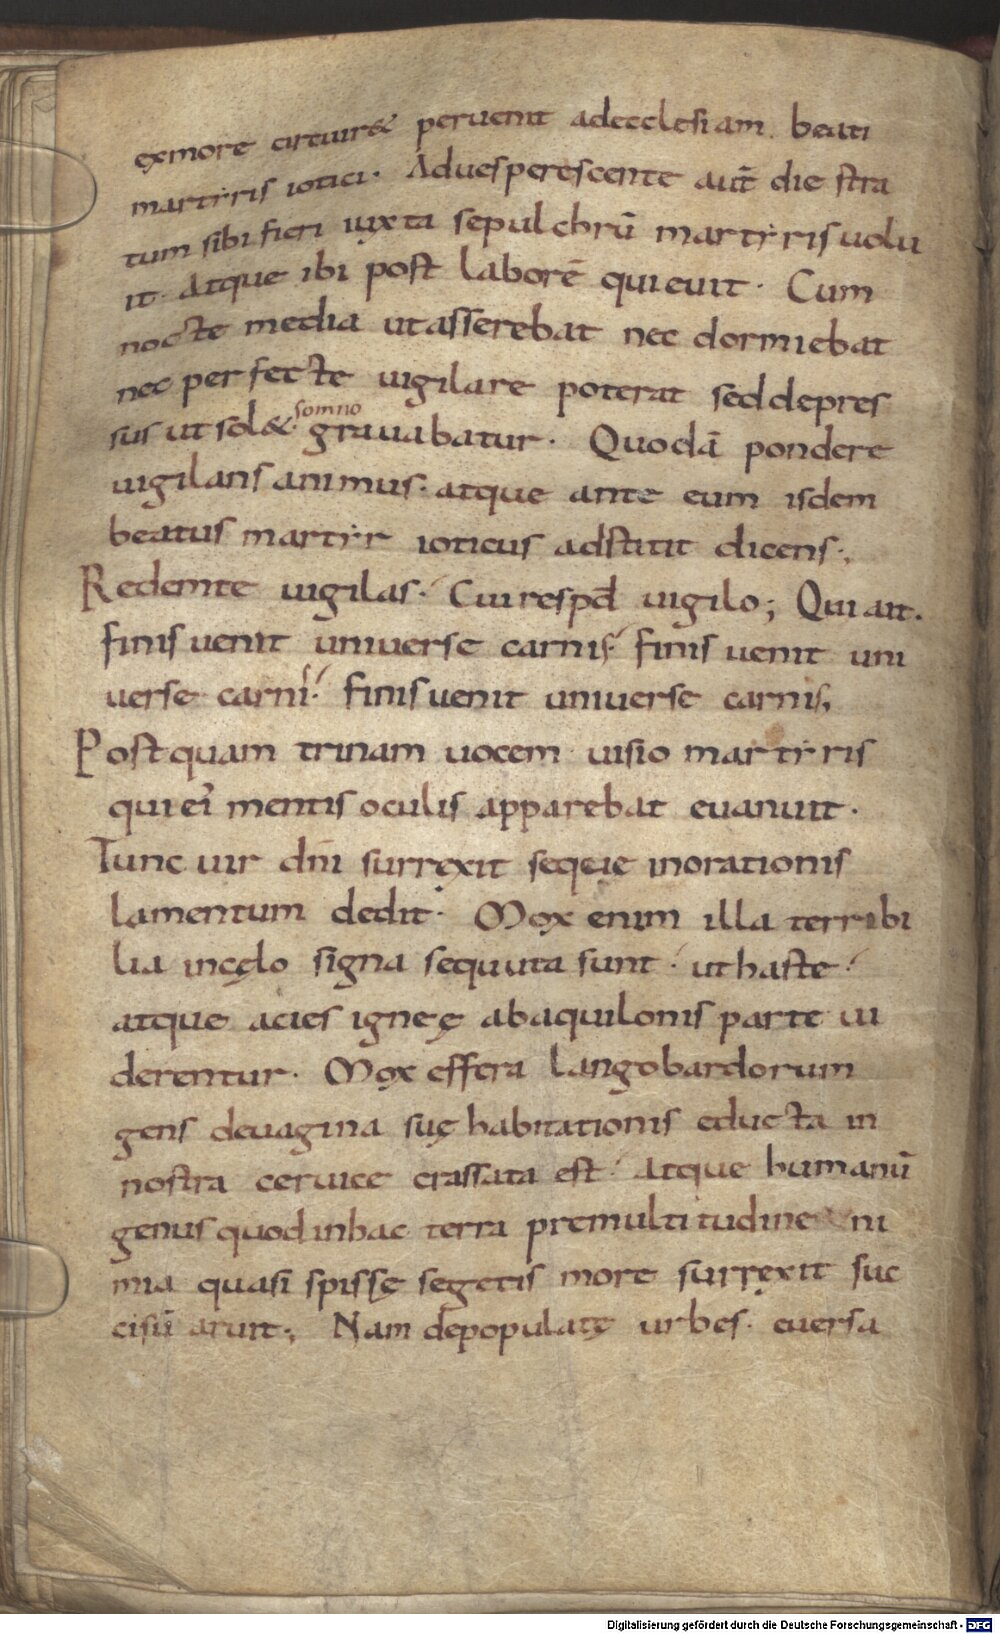 exmore circuir& peruenit adecclesiam. beati
martyris iotici. Aduesperescente aut̄ die stra
tum sibi fieri iuxta sepulchrū martyris uolu
it. atque ibi post laborē quieuit. Cum
nocte media utasserebat nec dormiebat
nec perfecte uigilare poterat sed depres
sus utsol&. somno grauabatur. Quodā pondere
uigilans animus. atque ante eum isdem
beatus martyr ioticus adstitit dicens.,
Redemte uigilas. Cui respd̄ uigilo; Qui ait.
finis uenit uniuerse carnis. finis uenit uni
uerse carnis. finis uenit uniuerse carnis,
Postquam trinam uocem uisio martyris
qui ei mentis oculis apparebat euanuit.
Tunc uir dn̄i surrexit seque inorationis
lamentum dedit. Mox enim illa terribi
lia incęlo signa sequuta sunt. ut haste.
atque acies igneę abaquilonis parte ui
derentur. Mox effera langobardorum
gens deuagina suę habitationis educta in
nostra ceruice crassata est. atque humanū
genus quod inhac terra premultitudine ni
mia quasi spissę segetis more surrexit suc
cisū aruit., Nam depopulatę urbes. euersa
Digitalisierung gefördert durch die Deutsche Forschungsgemeinschaft - DFG